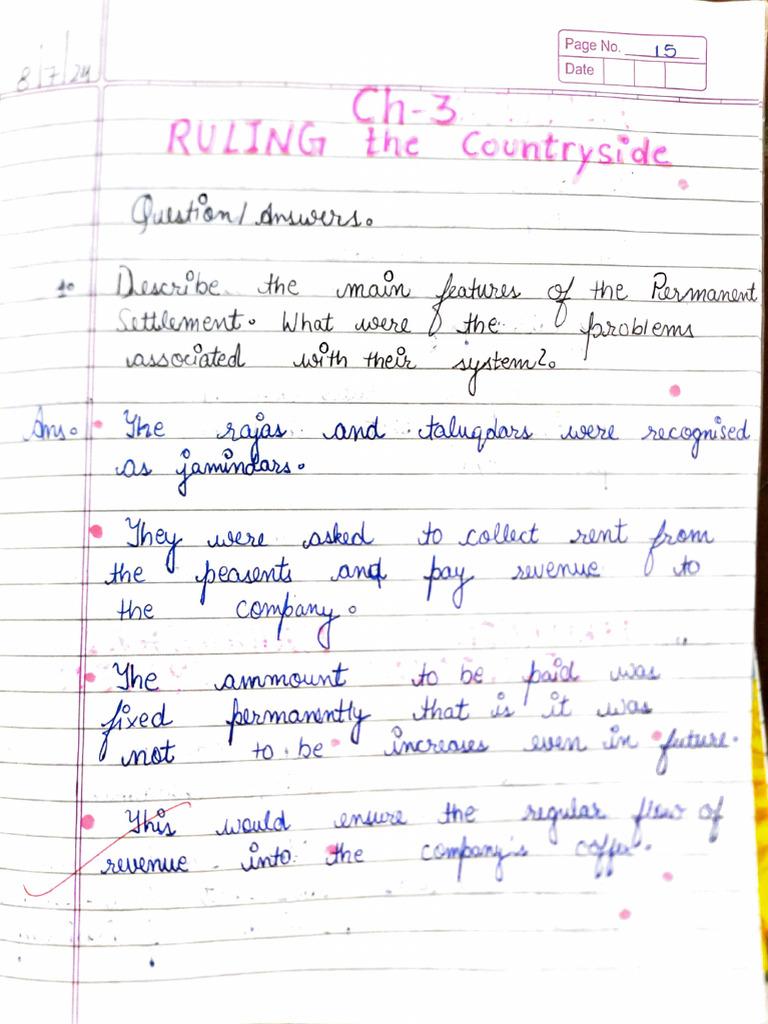 8/7/24
Page No. 15
Date
Ch-3
RULING the Countryside
Question/Answers.
1. Describe the main features of the Permanent
Settlement. What were the problems
associated with their system?.
Ans. • The rajas and taluqdars were recognised
as jamindars.
• They were asked to collect rent from
the peasents and pay revenue to
the company.
• The ammount to be paid was
fixed permanently that is it was
not to be increases even in future.
• This would ensure the regular flow of
revenue into the company's